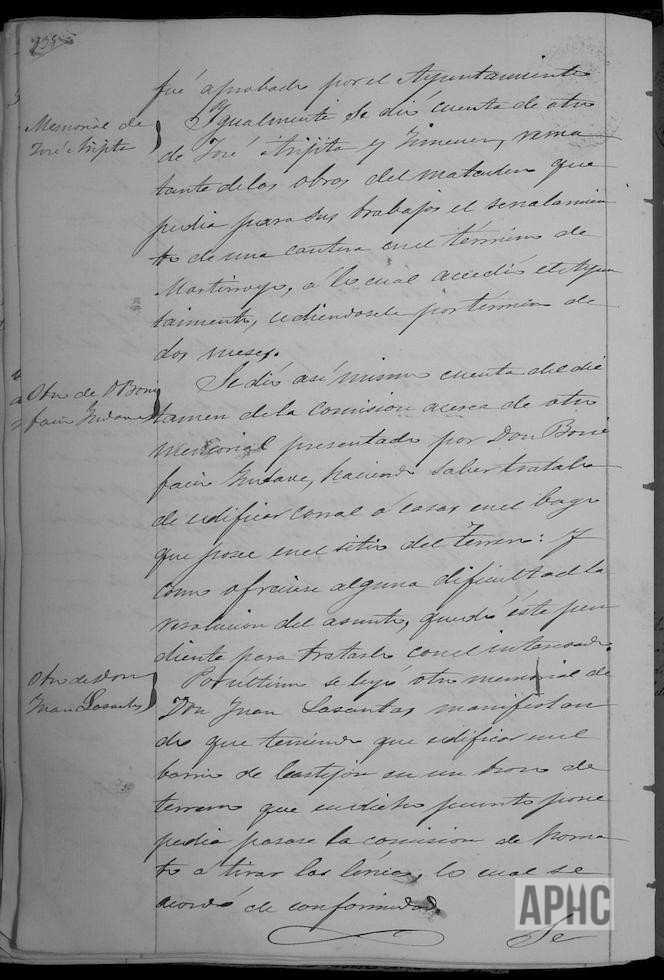 fué aprobado por el Ayuntamiento
Memorial de
José
Igualmente se dió cuenta de otro
de José y Jimenez, rema
tante de las obras del matadero que
pedia para sus trabajos el senalamien
to de una cantera en el término de
á lo cual accedió el Ayun
tamiento, cediendosela por término de
dos meses.
Otro de D Boni
facio
Se dió asi mismo cuenta del dic
tamen de la comision acerca de otro
memorial presentado por Don Boni
facio haciendo saber trataba
de edificar corral ó casas en el bago
que posee en el sitio del Terrero: Y
como ofreciese alguna dificultad la
resolucion del asunto, quedó éste pen
diente para tratarlo con el interesado.
Otro de Don
Juan Lasantas
Por último se leyó otro memorial de
Don Juan Lasantas manifestan
do que teniendo que edificar en el
barrio de Castejón en un trozo de
terreno que en dicho punto posee
pedia pasase la comision de horna
to a tirar las líneas, lo cual se
acordó de conformidad.
Se
APHC